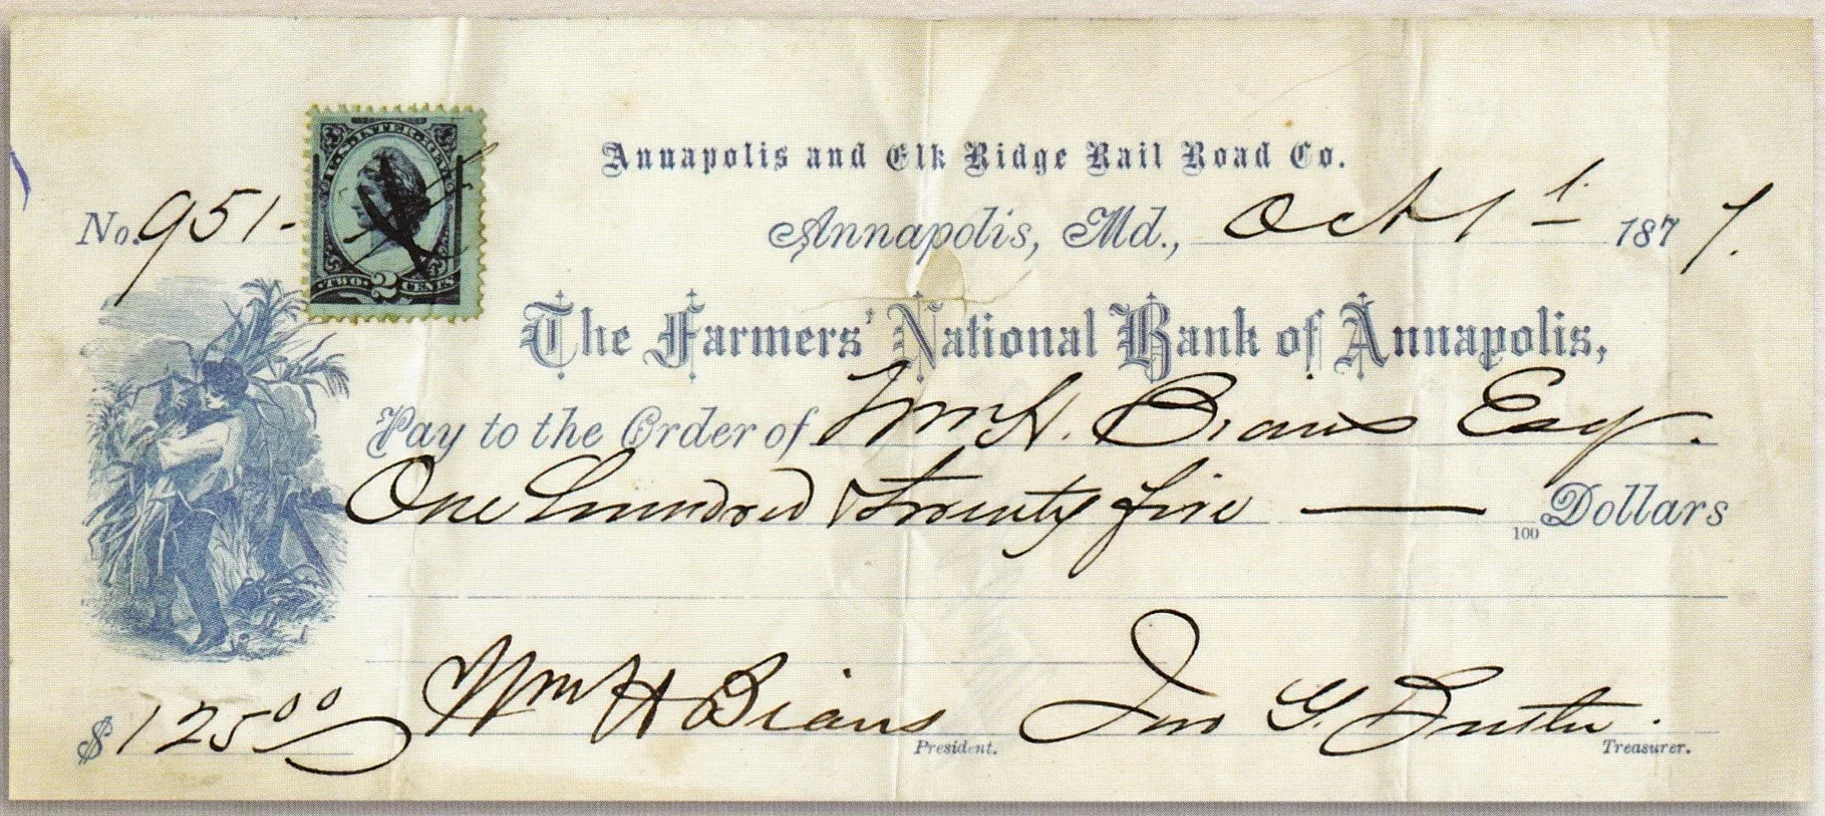 Annapolis and Elk Ridge Rail Road Co.
No. 951-
U.S. INTER. REVENUE
TWO 2 CENTS
Annapolis, Md., Oct 1st 1877.
The Farmers' National Bank of Annapolis,
Pay to the Order of Wm H. Bians Esq.
One Hundred Twenty five — 100 Dollars
$125 00 Wm H Bians President. Jno G. Treasurer.